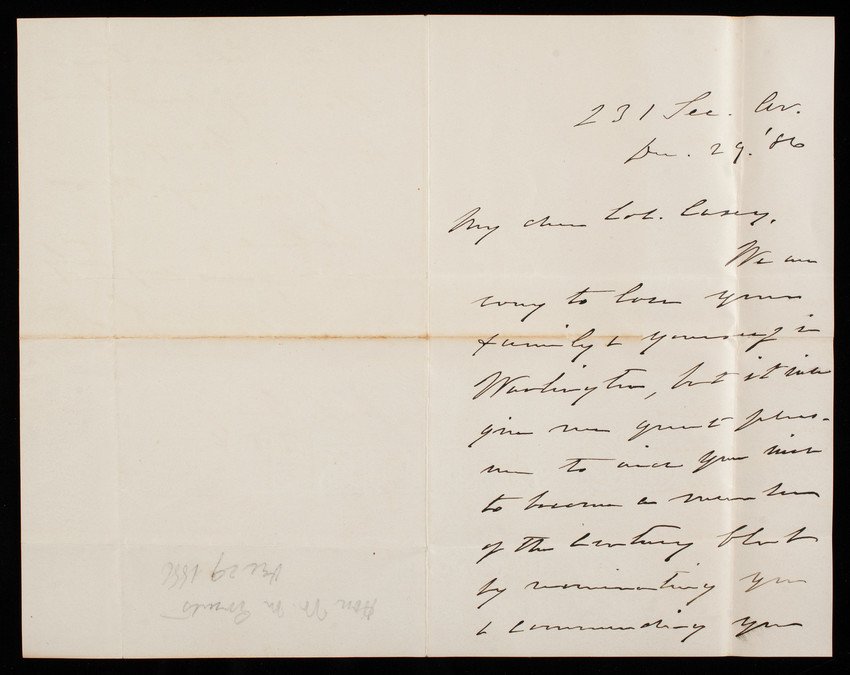 231 Sec. Av.
Dec. 29. '86
My dear Col. Casey,
We are
sorry to lose your
family & yourself in
Washington, but it will
give me great pleas-
ure to aid your wish
to become a member
of the Century Club
by nominating you
& commending you
Hon W. M. Evarts
Dec 29 1886